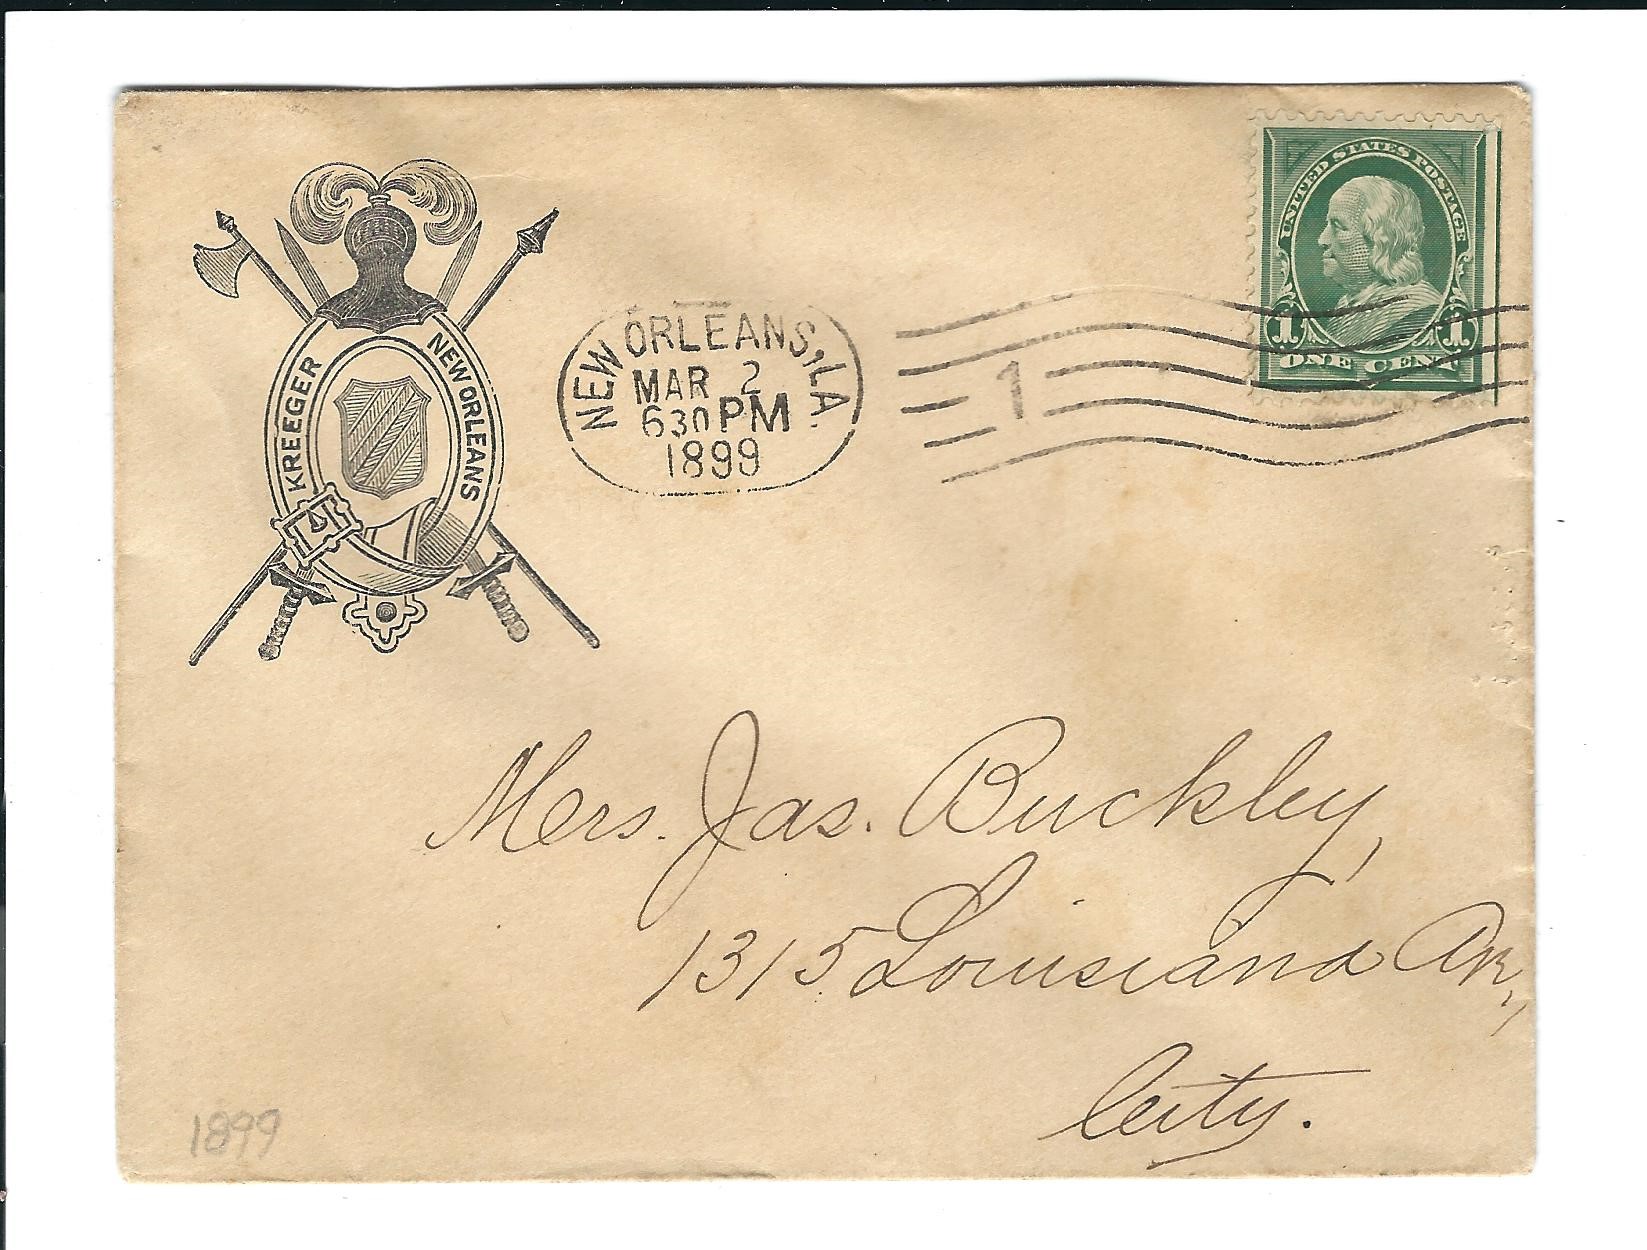 KREEGER
NEW ORLEANS
NEW ORLEANS, LA.
MAR 2
630 PM
1899
1
UNITED STATES POSTAGE
1 1
ONE CENT
Mrs. Jas. Buckley,
1315 Louisiana Av,
City.
1899